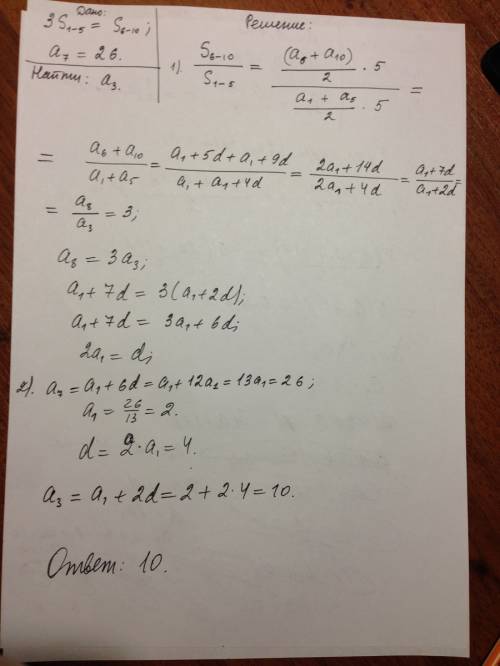 Дано:
3S₁₋₅ = S₆₋₁₀;
a₇ = 26.
Найти: a₃.
Решение:
1). S₆₋₁₀ / S₁₋₅ = ((a₆ + a₁₀)/2 · 5) / ((a₁ + a₅)/2 · 5) =
= (a₆ + a₁₀)/(a₁ + a₅) = (a₁ + 5d + a₁ + 9d)/(a₁ + a₁ + 4d) = (2a₁ + 14d)/(2a₁ + 4d) = (a₁ + 7d)/(a₁ + 2d) =
= a₈/a₃ = 3;
a₈ = 3a₃;
a₁ + 7d = 3(a₁ + 2d);
a₁ + 7d = 3a₁ + 6d;
2a₁ = d;
2). a₇ = a₁ + 6d = a₁ + 12a₁ = 13a₁ = 26;
a₁ = 26/13 = 2.
d = 2 · a₁ = 4.
a₃ = a₁ + 2d = 2 + 2·4 = 10.
Ответ: 10.